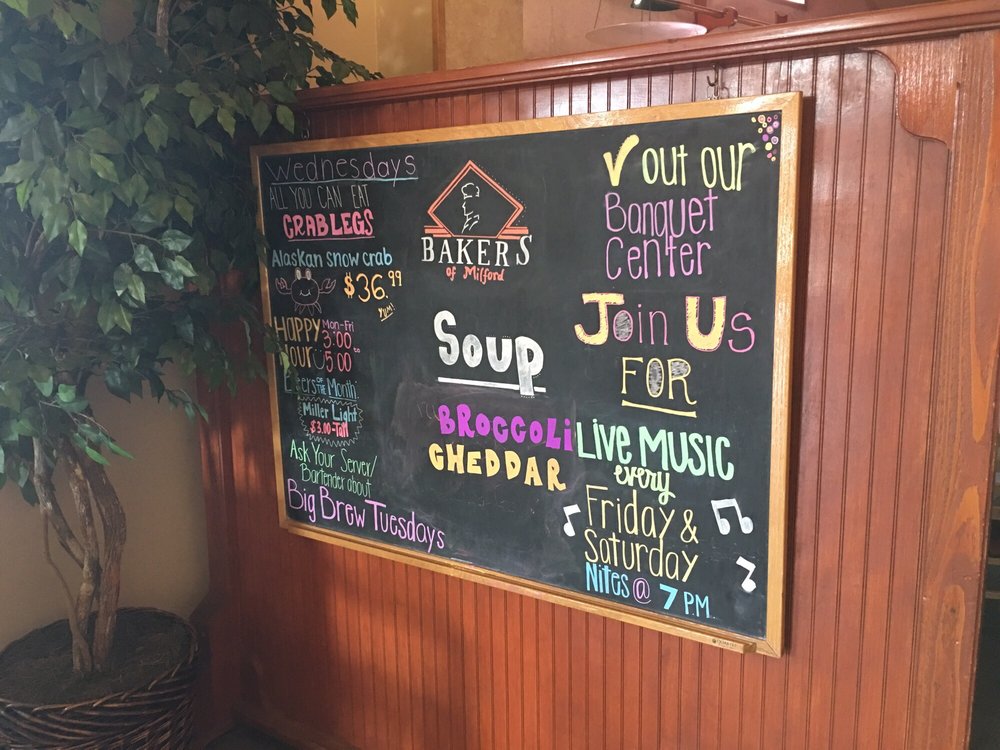 Wednesdays
ALL YOU CAN EAT
CRAB LEGS
Alaskan Snow crab
$36.99
yum!
HAPPY
HOUR
Mon-Fri
3:00 to
5:00
Beers OF THE Month:
Miller Light
$3.00-Tall
Ask Your Server/
Bartender about
Big Brew Tuesdays
BAKERS
of Milford
Soup
BROCCOLI
CHEDDAR
✓ out our
Banquet
Center
Join Us
FOR
LIVE MUSIC
every
Friday &
Saturday
Nites @ 7 P.M.
QUARTET